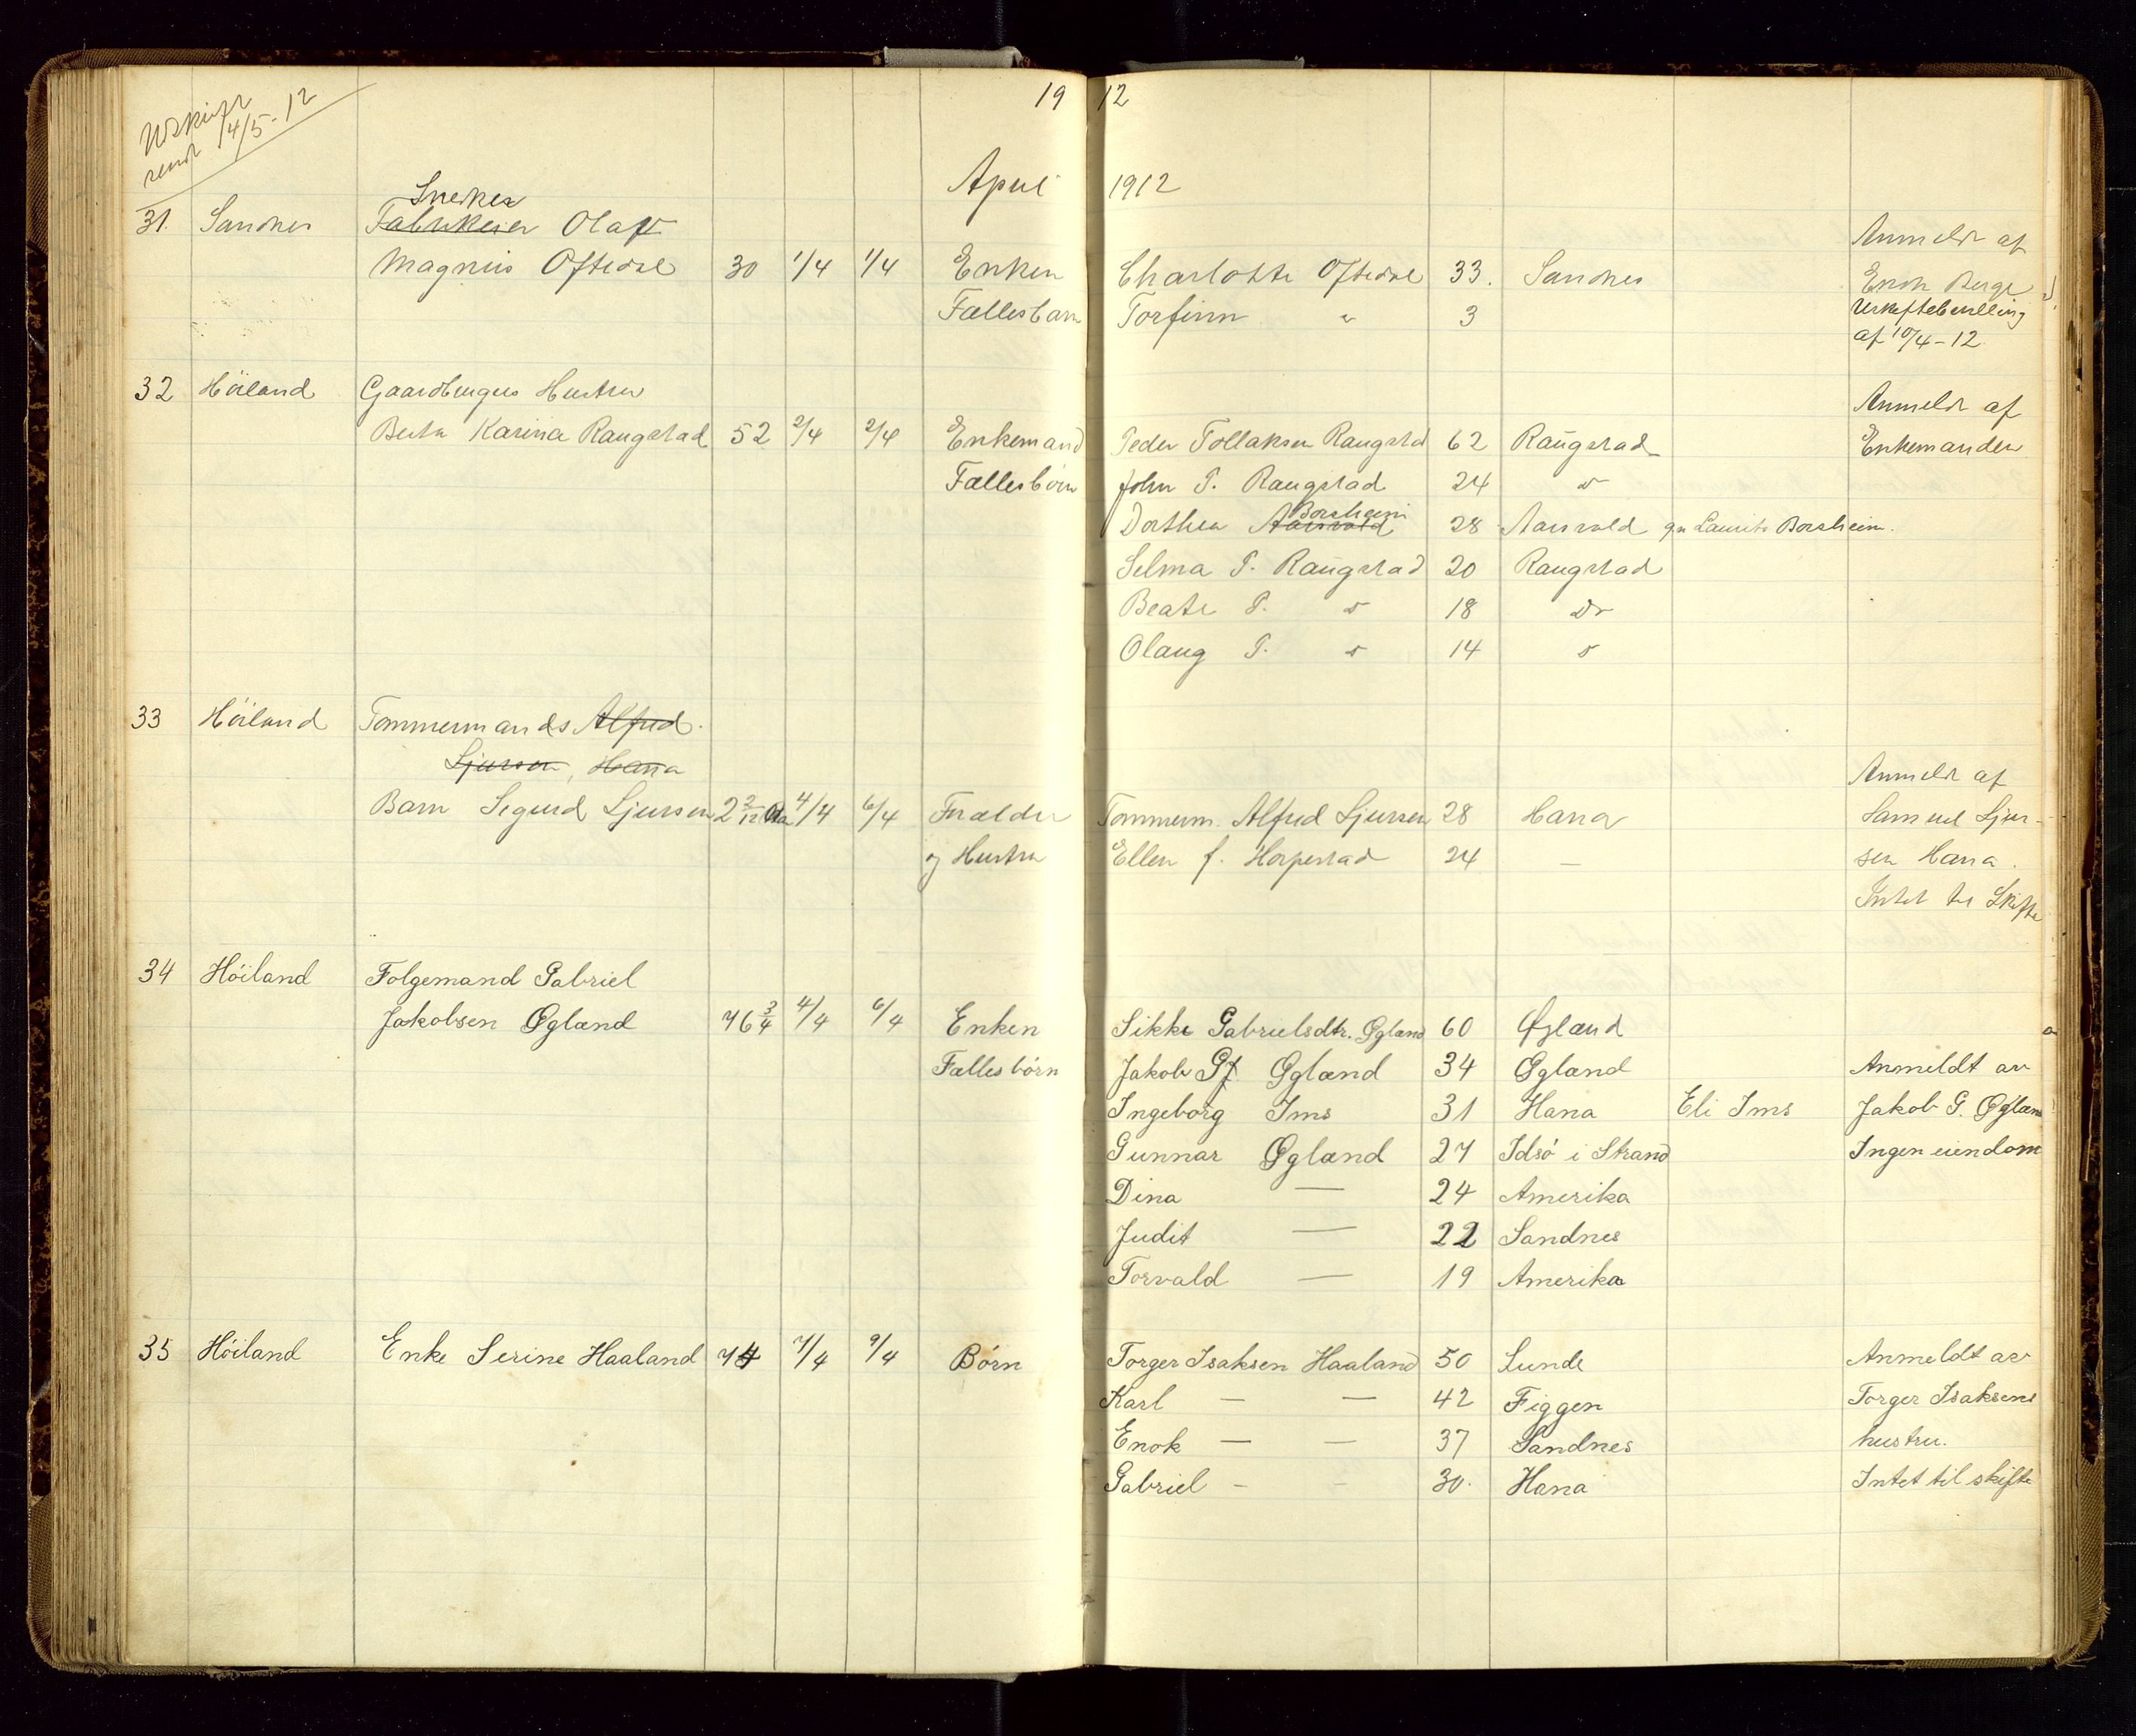 Utskift
sendt 14/5-12
19 12
April 1912
Snedker
31. Sandnes Fabrikeier Olaf
Anmeldt af
Magnus Oftedal 30 1/4 1/4 Enken Charlotte Oftedal 33. Sandnes Enok Berge
Fællesbarn Torfinn " 3 Uskiftebevilling
af 10/4-12
32 Höiland Gaardbrugers Hustru
Anmeldt af
Berta Karina Raugstad 52 2/4 2/4 Enkemand Peder Tollaksen Raugstad 62 Raugstad Enkemanden
Fællesbörn John P. Raugstad 24 "
Borsheim
Dorthea Aarsvold 28 Aarsvold gm Laurits Borsheim.
Selma P. Raugstad 20 Raugstad
Beate P. " 18 Do
Olaug P. " 14 "
33 Höiland Tømmermands Alfred
Sjursen, Hana
Anmeldt af
Barn Sigurd Sjursen 2 2/12 Aar 4/4 6/4 Forælder Tømmerm. Alfred Sjursen 28 Hana Samuel Sjur-
og Hustru Ellen f. Horpestad 24 — sen Hana.
Intet til Skifte
34 Höiland Folgemand Gabriel
Jakobsen Øgland 76 3/4 4/4 6/4 Enken Sikke Gabrielsdtr. Øgland 60 Øgland
Fællesbörn Jakob G Øgland 34 Øgland Anmeldt av
Ingeborg Ims 31 Hana Eli Ims Jakob G. Øgland
Gunnar Øgland 27 Idsö i Strand Ingen eiendom
Dina — 24 Amerika
Judit — 22 Sandnes
Torvald — 19 Amerika
35 Höiland Enke Serine Haaland 74 7/4 9/4 Börn Torger Isaksen Haaland 50 Lunde Anmeldt av
Karl — — 42 Figgen Torger Isaksens
Enok — — 37 Sandnes hustru.
Gabriel - - 30. Hana Intet til skifte